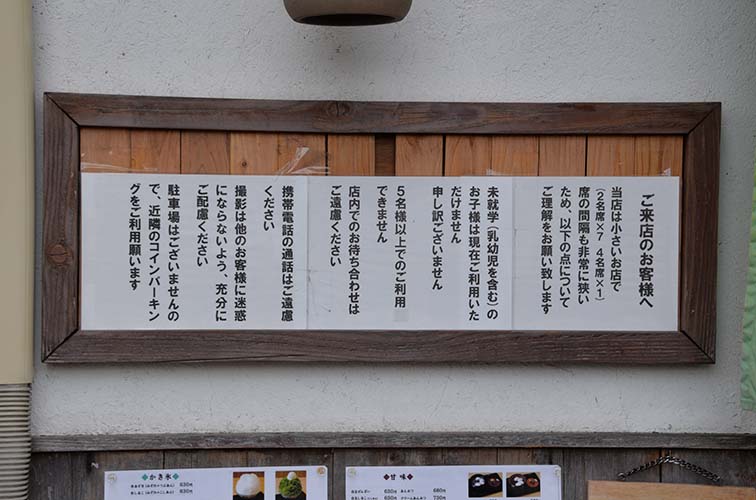 ご来店のお客様へ
当店は小さいお店で
（2名席×7 4名席×1）
席の間隔も非常に狭い
ため、以下の点について
ご理解をお願い致します
未就学（乳幼児を含む）の
お子様は現在ご利用いた
だけません
申し訳ございません
5名様以上でのご利用
できません
店内でのお待ち合わせは
ご遠慮ください
携帯電話の通話はご遠慮
ください
撮影は他のお客様に迷惑
にならないよう、充分に
ご配慮ください
駐車場はございませんの
で、近隣のコインパーキン
グをご利用願います
かき氷
830円
830円
甘味
680円
700円